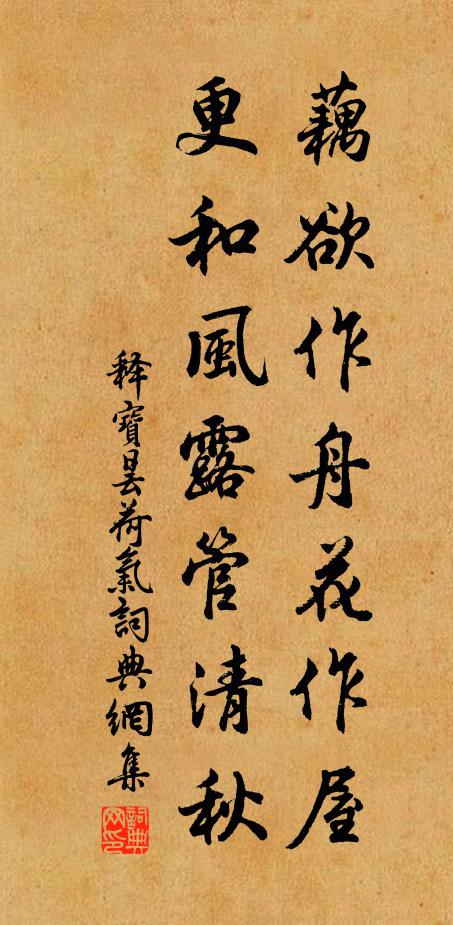 藕欲作舟花作屋
更和風露管清秋
释寶曇荷氣詞典網集
詞典网印